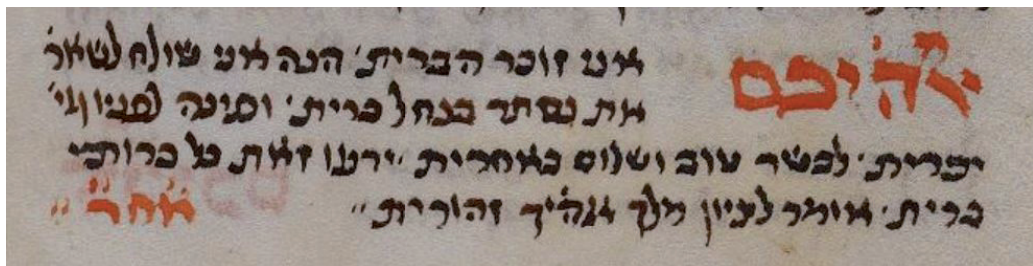 אלהיכם
אני זוכר הברית׳ הנה אני שולח לשאר׳
את נסתר בנחל כרית׳
לבשר טוב ושלום באחרית׳ ידעו זאת כל כרותי
ברית׳ אומר לציון מלך אלהיך זהורית׳ אחר׳